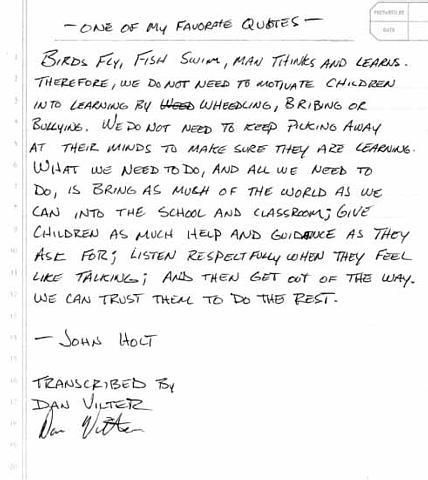 — ONE OF MY FAVORATE QUOTES —
PREPARED BY
DATE
BIRDS FLY, FISH SWIM, MAN THINKS AND LEARNS.
THEREFORE, WE DO NOT NEED TO MOTIVATE CHILDREN
INTO LEARNING BY WEED WHEEDLING, BRIBING OR
BULLYING. WE DO NOT NEED TO KEEP PICKING AWAY
AT THEIR MINDS TO MAKE SURE THEY ARE LEARNING.
WHAT WE NEED TO DO, AND ALL WE NEED TO
DO, IS BRING AS MUCH OF THE WORLD AS WE
CAN INTO THE SCHOOL AND CLASSROOM; GIVE
CHILDREN AS MUCH HELP AND GUIDANCE AS THEY
ASK FOR; LISTEN RESPECTFULLY WHEN THEY FEEL
LIKE TALKING; AND THEN GET OUT OF THE WAY.
WE CAN TRUST THEM TO DO THE REST.
— JOHN HOLT
TRANSCRIBED BY
DAN VILTER
Dan Vilter